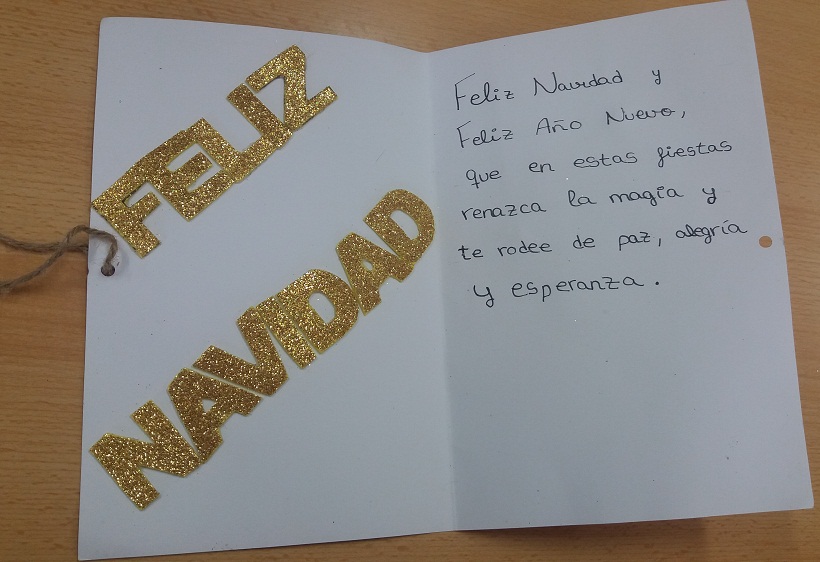 FELIZ
NAVIDAD
Feliz Navidad y
Feliz Año Nuevo,
que en estas fiestas
renazca la magia y
te rodee de paz, alegría
y esperanza.